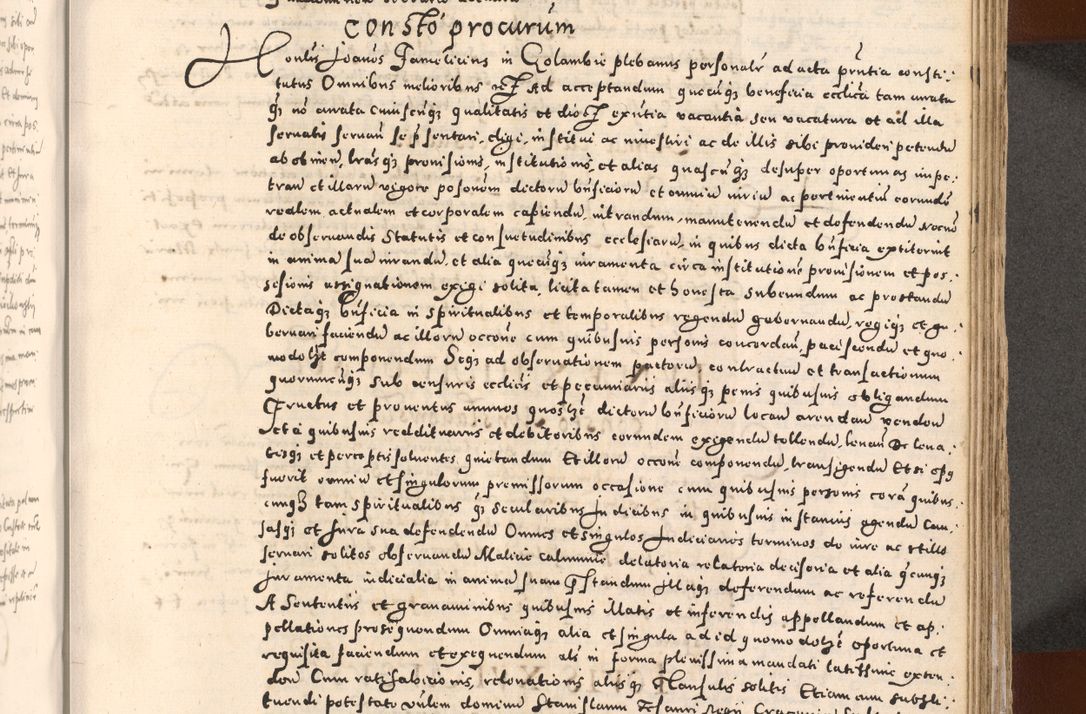 Consto procurum
Honlis Joanes Famelicius in Golambie plebanus personalr ad acta pntia consti:
tutus Omnibus melioribus Ad acceptandum quecuqz beneficia ecclica tam curata
qz no curata cuiuscuqz qualitatis et dioc exntia vacantia seu vacatura et ad illa
servatis servan se psentari, eligi, institui ac investiri ac de illis sibi provideri petendu
ab obinen, lrasqz provisionis, institutionis, et alias quascuqz desuper oportunas impe:
tran et illaru vigore posonem dictoru bnficioru et omniu iuriu ac pertinentiu eorundu
realem, actualem et corporalem capiendu, intrandum, manutenendu et defendendu
de observandis Statutis et consuetudinibus ecclesiaru, in quibus dicta bnficia extiterint
in anima sua iurandu, et alia quecuqz iuramenta circa institutione provisionem et pos:
sesionis assignationem exigi solita, licita tamen et honesta subeundum ac prestandu
Dictaqz bnficia in spiritualibus et temporalibus regendu gubernandu, regiqz et gu:
bernari faciendu ac illoru occone cum quibusuis personis concordan, paciscendu et quo
modolzt componendum Seqz ad observationem pactoru, contractuu et transactionum
quorumcuqz sub censuris ecclicis et pecuniariis aliisqz penis quibusuis obligandum
Fructus et proventus annuos quoslzt dictoru bnficioru locan arendan vendan
et a quibusuis reddituariis et debitoribus eorundem exigendu tollendu, levan De leva:
tisqz et perceptis solventes quietandum Et illoru occone componendu, transigendu Et si opq
fuerit omniu et singulorum premissorum occasione cum quibusuis personis cora quibus:
cunqz tam spiritualibus qz secularibus Judicibus in quibusuis instantiis agendu Cau:
sasqz et Jura sua defendendu Omnes et singulos Judiciarios terminos de iure ac stillo
servari solitos observandu Malicie calumnie delatoria relatoria decisoria et alia qcuqz
Juramenta iudicialia in animu suam pstandum illaqz deferendum ac referendu
A Sententiis et gravaminibus quibusuis illatis et inferendis appellandum et ap:
pellationes prosequendum Omniaqz alia et singula ad id quomodolzt oportuna et
requisita faciendum et exequendum als in forma plenissima mandati latissime exten:
den Cum ratihabicionis, relevationis aliisqz Clausulis solitis Etiam cum substi:
tuendi potestate vnlem dominu Stanislaum